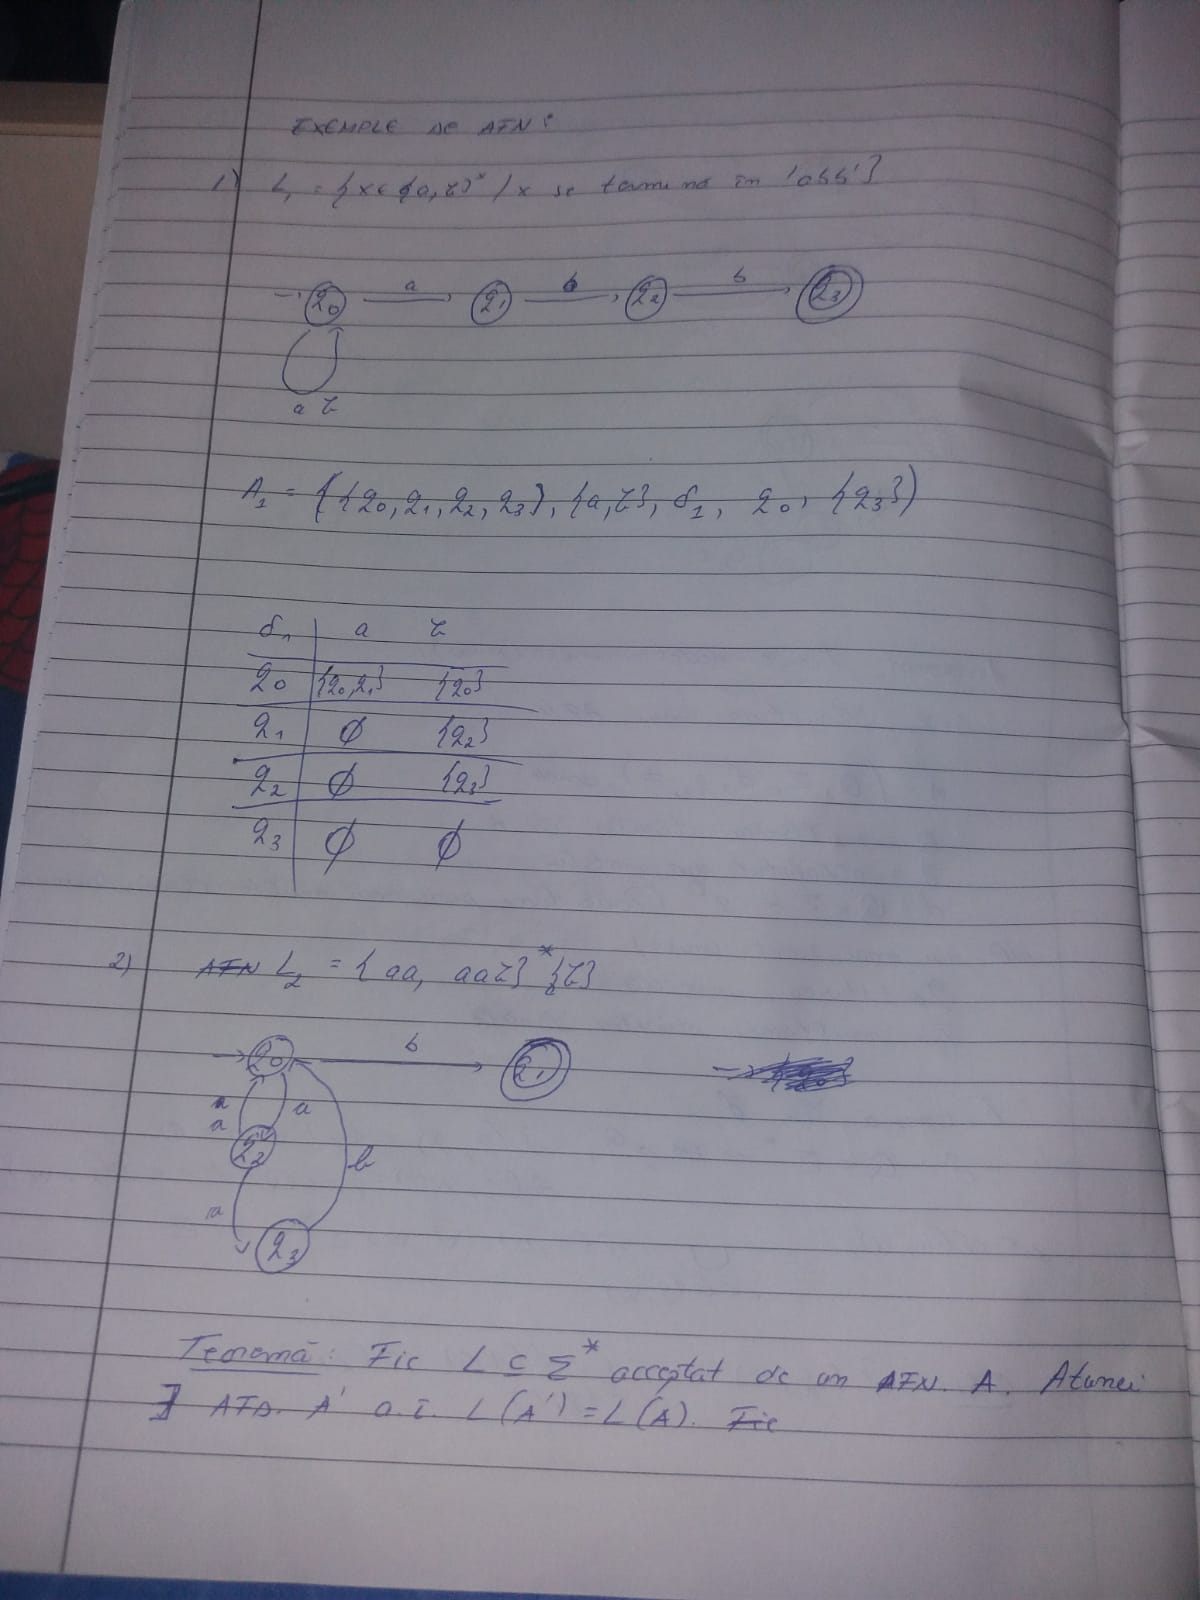 EXEMPLE DE AFN:
1) L₁ = {x∈{a,b}* / x se termină în 'abb'}
→ q₀ a q₁ b q₂ b q₃
a b
A₁ = ({q₀, q₁, q₂, q₃}, {a,b}, δ₁, q₀, {q₃})
δ₁ a b
q₀ {q₀,q₁} {q₀}
q₁ ∅ {q₂}
q₂ ∅ {q₃}
q₃ ∅ ∅
2) AFN L₂ = {aa, aab}* {b}
→ q₀ b q₁
a a
q₂ b
a
q₃
Teoremă: Fie L ⊆ Σ* acceptat de un AFN. A. Atunci
∃ AFD. A' a.î. L(A') = L(A). Fie